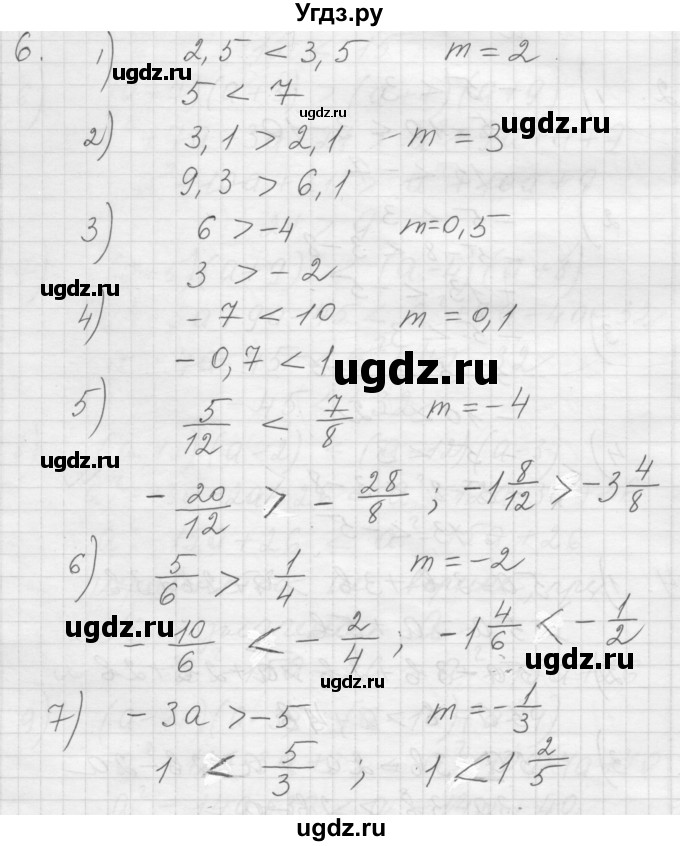 Угдз.ру
6. 1) 2,5 < 3,5 m = 2
ugdz.ru
5 < 7
ugdz.ru
2) 3,1 > 2,1 - m = 3
9,3 > 6,1
3) 6 > -4 m=0,5
3 > - 2
ugdz.ru
4) - 7 < 10 m = 0,1
- 0,7 < 1
ugdz.ru
5) 5/12 < 7/8 m = - 4
ugdz.ru
- 20/12 > - 28/8 ; -1 8/12 > -3 4/8
6) 5/6 > 1/4 m = - 2
ugdz.ru
- 10/6 < - 2/4 ; -1 4/6 < - 1/2
ugdz.ru
ugdz.ru
7) - 3a > -5 m = - 1/3
1 < 5/3 ; 1 < 1 2/5
ugdz.ru
ugdz.ru
ugdz.ru